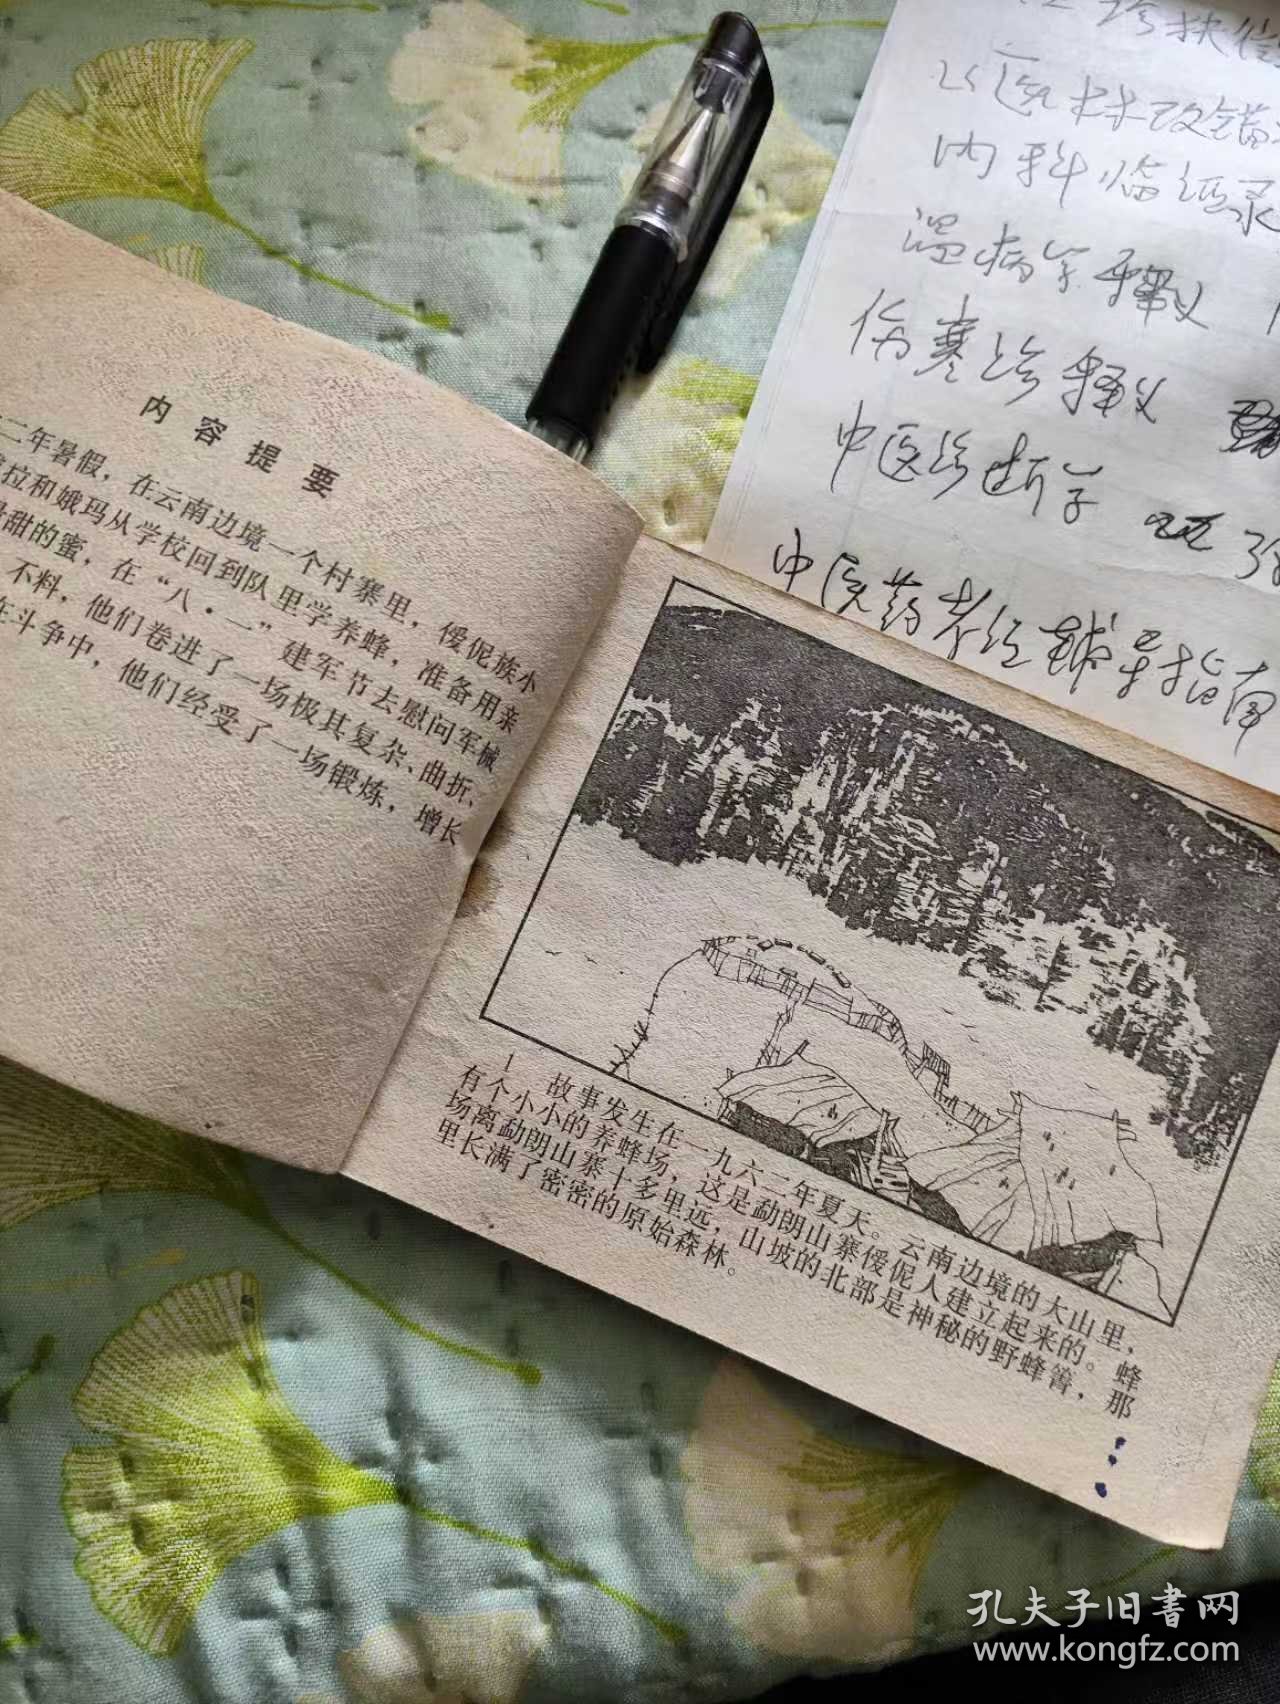 内容提要
二年暑假，在云南边境一个村寨里，僾伲族小
拉和娥玛从学校回到队里学养蜂，准备用亲
甜的蜜，在“八·一”建军节去慰问军械
不料，他们卷进了一场极其复杂、曲折、
在斗争中，他们经受了一场锻炼，增长
1 故事发生在一九六二年夏天。云南边境的大山里，
有个小小的养蜂场，这是勐朗山寨僾伲人建立起来的。蜂
场离勐朗山寨十多里远，山坡的北部是神秘的野蜂箐，那
里长满了密密的原始森林。
医林改错
内科临证录
温病学释义
伤寒论释义
中医诊断学
中医药考经辅导指南
孔夫子旧书网
www.kongfz.com